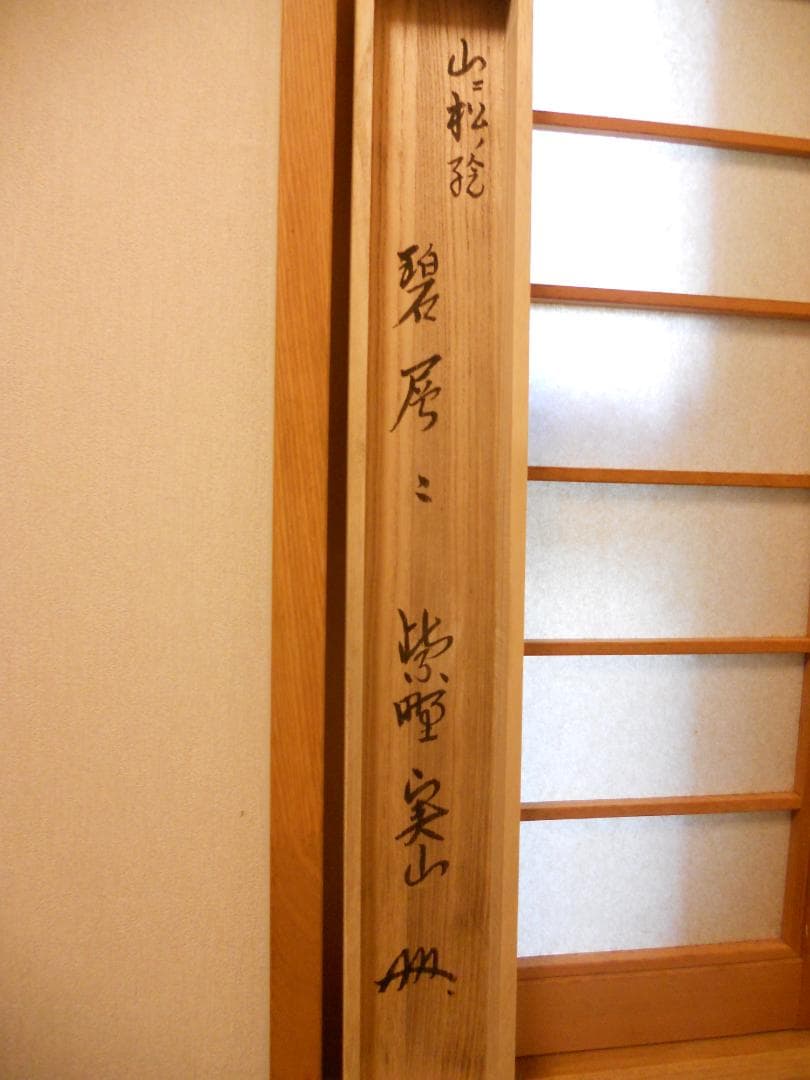 山ニ松ノ絵
碧層々 紫野 実山